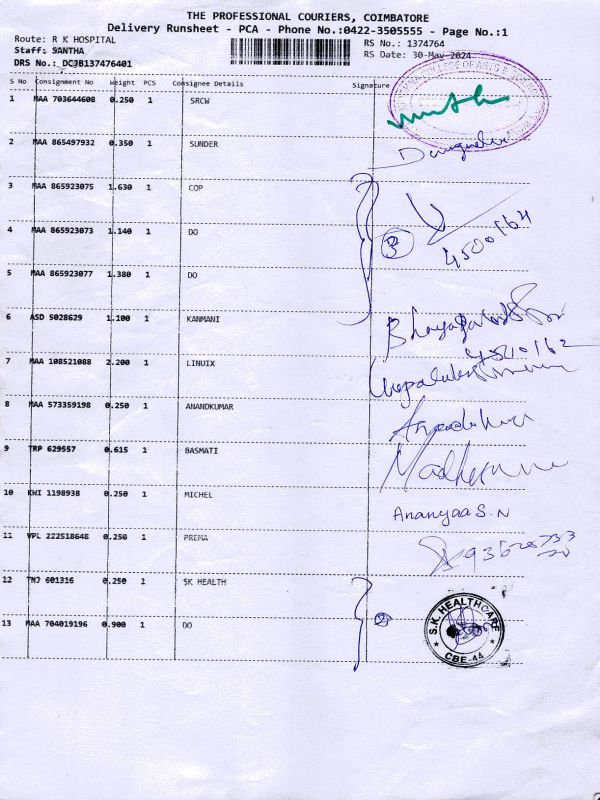 THE PROFESSIONAL COURIERS, COIMBATORE
Delivery Runsheet - PCA - Phone No.:0422-3505555 - Page No.:1
Route: R K HOSPITAL
RS No.: 1374764
Staff: SANTHA
RS Date: 30-May-2024
DRS No.: DCJB137476401
S No Consignment No Weight PCS Consignee Details Signature
1 MAA 703644608 0.250 1 SRCW
2 MAA 865497932 0.350 1 SUNDER
3 MAA 865923075 1.630 1 COP
4 MAA 865923073 1.140 1 DO
3
4500164
5 MAA 865923077 1.380 1 DO
6 ASD 5028629 1.100 1 KANMANI
7 MAA 108521088 2.200 1 LINUIX
8 MAA 573359198 0.250 1 ANANDKUMAR
9 TRP 629557 0.615 1 BASMATI
10 KWI 1198938 0.250 1 MICHEL
Ananyaa S.N
11 VPL 222518648 0.250 1 PREMA
12 TNJ 601316 0.250 1 SK HEALTH
13 MAA 704019196 0.900 1 DO
2
S.K. HEALTHCARE
CBE-44